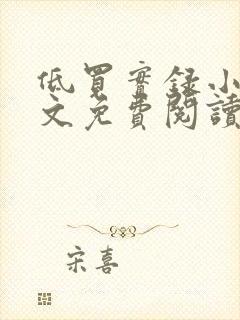 低買實錄小
文免費閱讀
宋喜